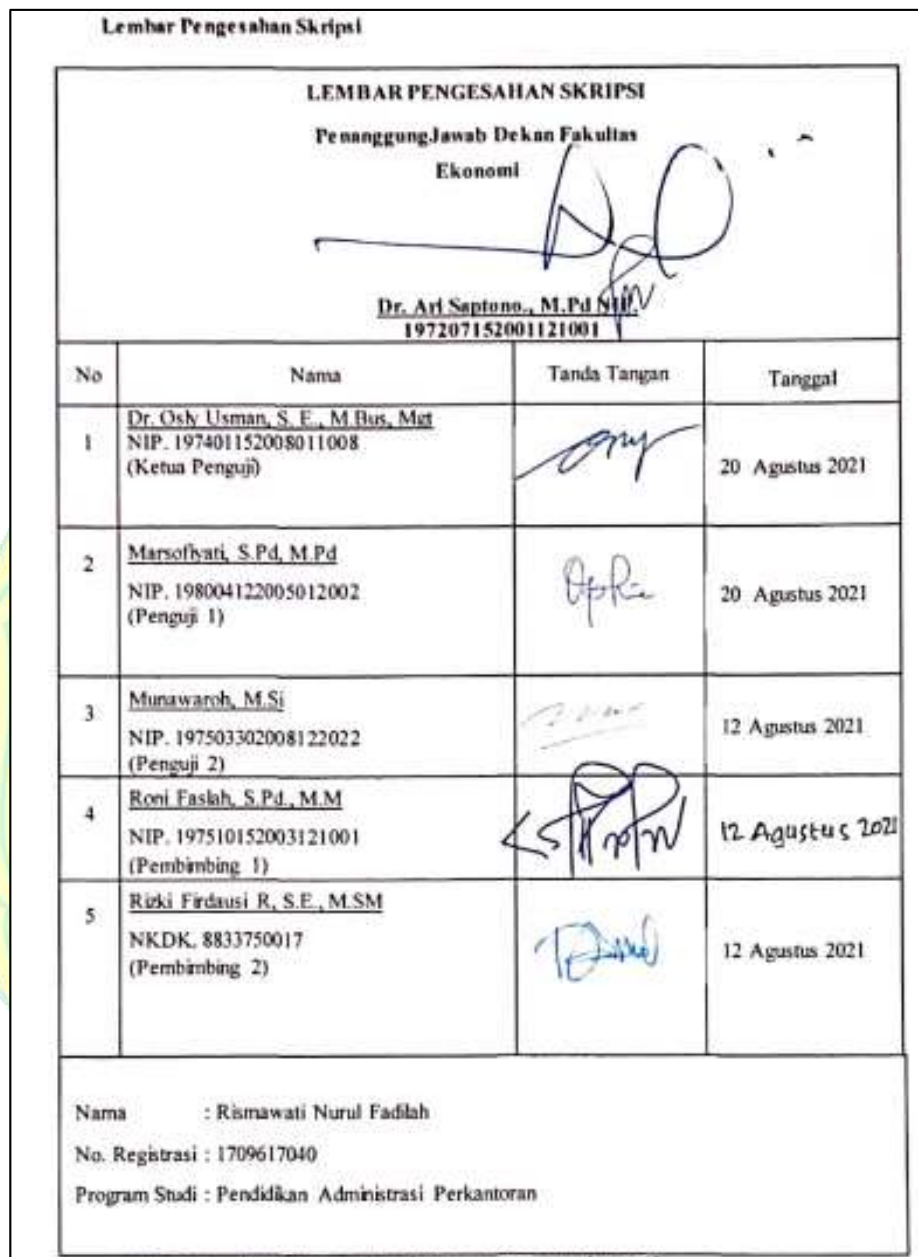 Lembar Pengesahan Skripsi
LEMBAR PENGESAHAN SKRIPSI
PenanggungJawab Dekan Fakultas
Ekonomi
Dr. Ari Saptono., M.Pd NIP.
197207152001121001
No Nama Tanda Tangan Tanggal
1 Dr. Osly Usman, S. E., M.Bus, Mgt
NIP. 197401152008011008
(Ketua Penguji)
20 Agustus 2021
2 Marsofiyati, S.Pd, M.Pd
NIP. 198004122005012002
(Penguji 1)
20 Agustus 2021
3 Munawaroh, M.Si
NIP. 197503302008122022
(Penguji 2)
12 Agustus 2021
4 Roni Faslah, S.Pd., M.M
NIP. 197510152003121001
(Pembimbing 1)
12 Agustus 2021
5 Rizki Firdausi R, S.E., M.SM
NKDK. 8833750017
(Pembimbing 2)
12 Agustus 2021
Nama : Rismawati Nurul Fadilah
No. Registrasi : 1709617040
Program Studi : Pendidikan Administrasi Perkantoran